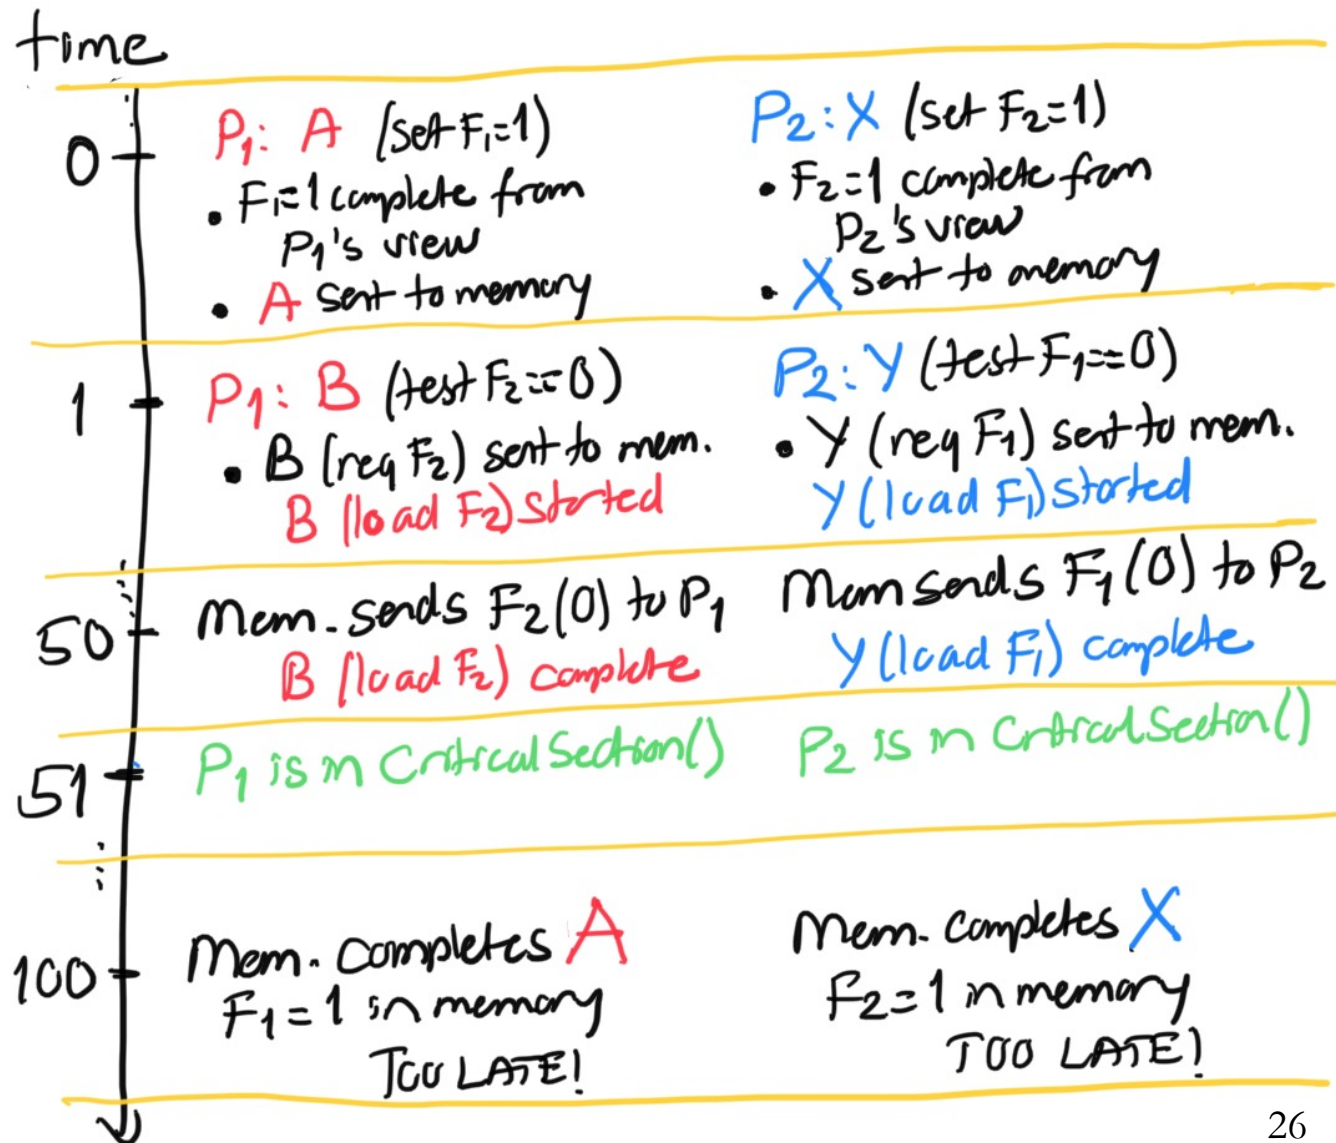 time
0
P₁: A (set F₁=1)
• F₁=1 complete from
P₁'s view
• A sent to memory
P₂: X (set F₂=1)
• F₂=1 complete from
P₂'s view
• X sent to memory
1
P₁: B (test F₂==0)
• B (req F₂) sent to mem.
B (load F₂) started
P₂: Y (test F₁==0)
• Y (req F₁) sent to mem.
Y (load F₁) started
50
Mem. sends F₂(0) to P₁
B (load F₂) complete
Mem sends F₁(0) to P₂
Y (load F₁) complete
51
P₁ is in Critical Section()
P₂ is in Critical Section()
100
Mem. completes A
F₁=1 in memory
TOO LATE!
Mem. completes X
F₂=1 in memory
TOO LATE!
26